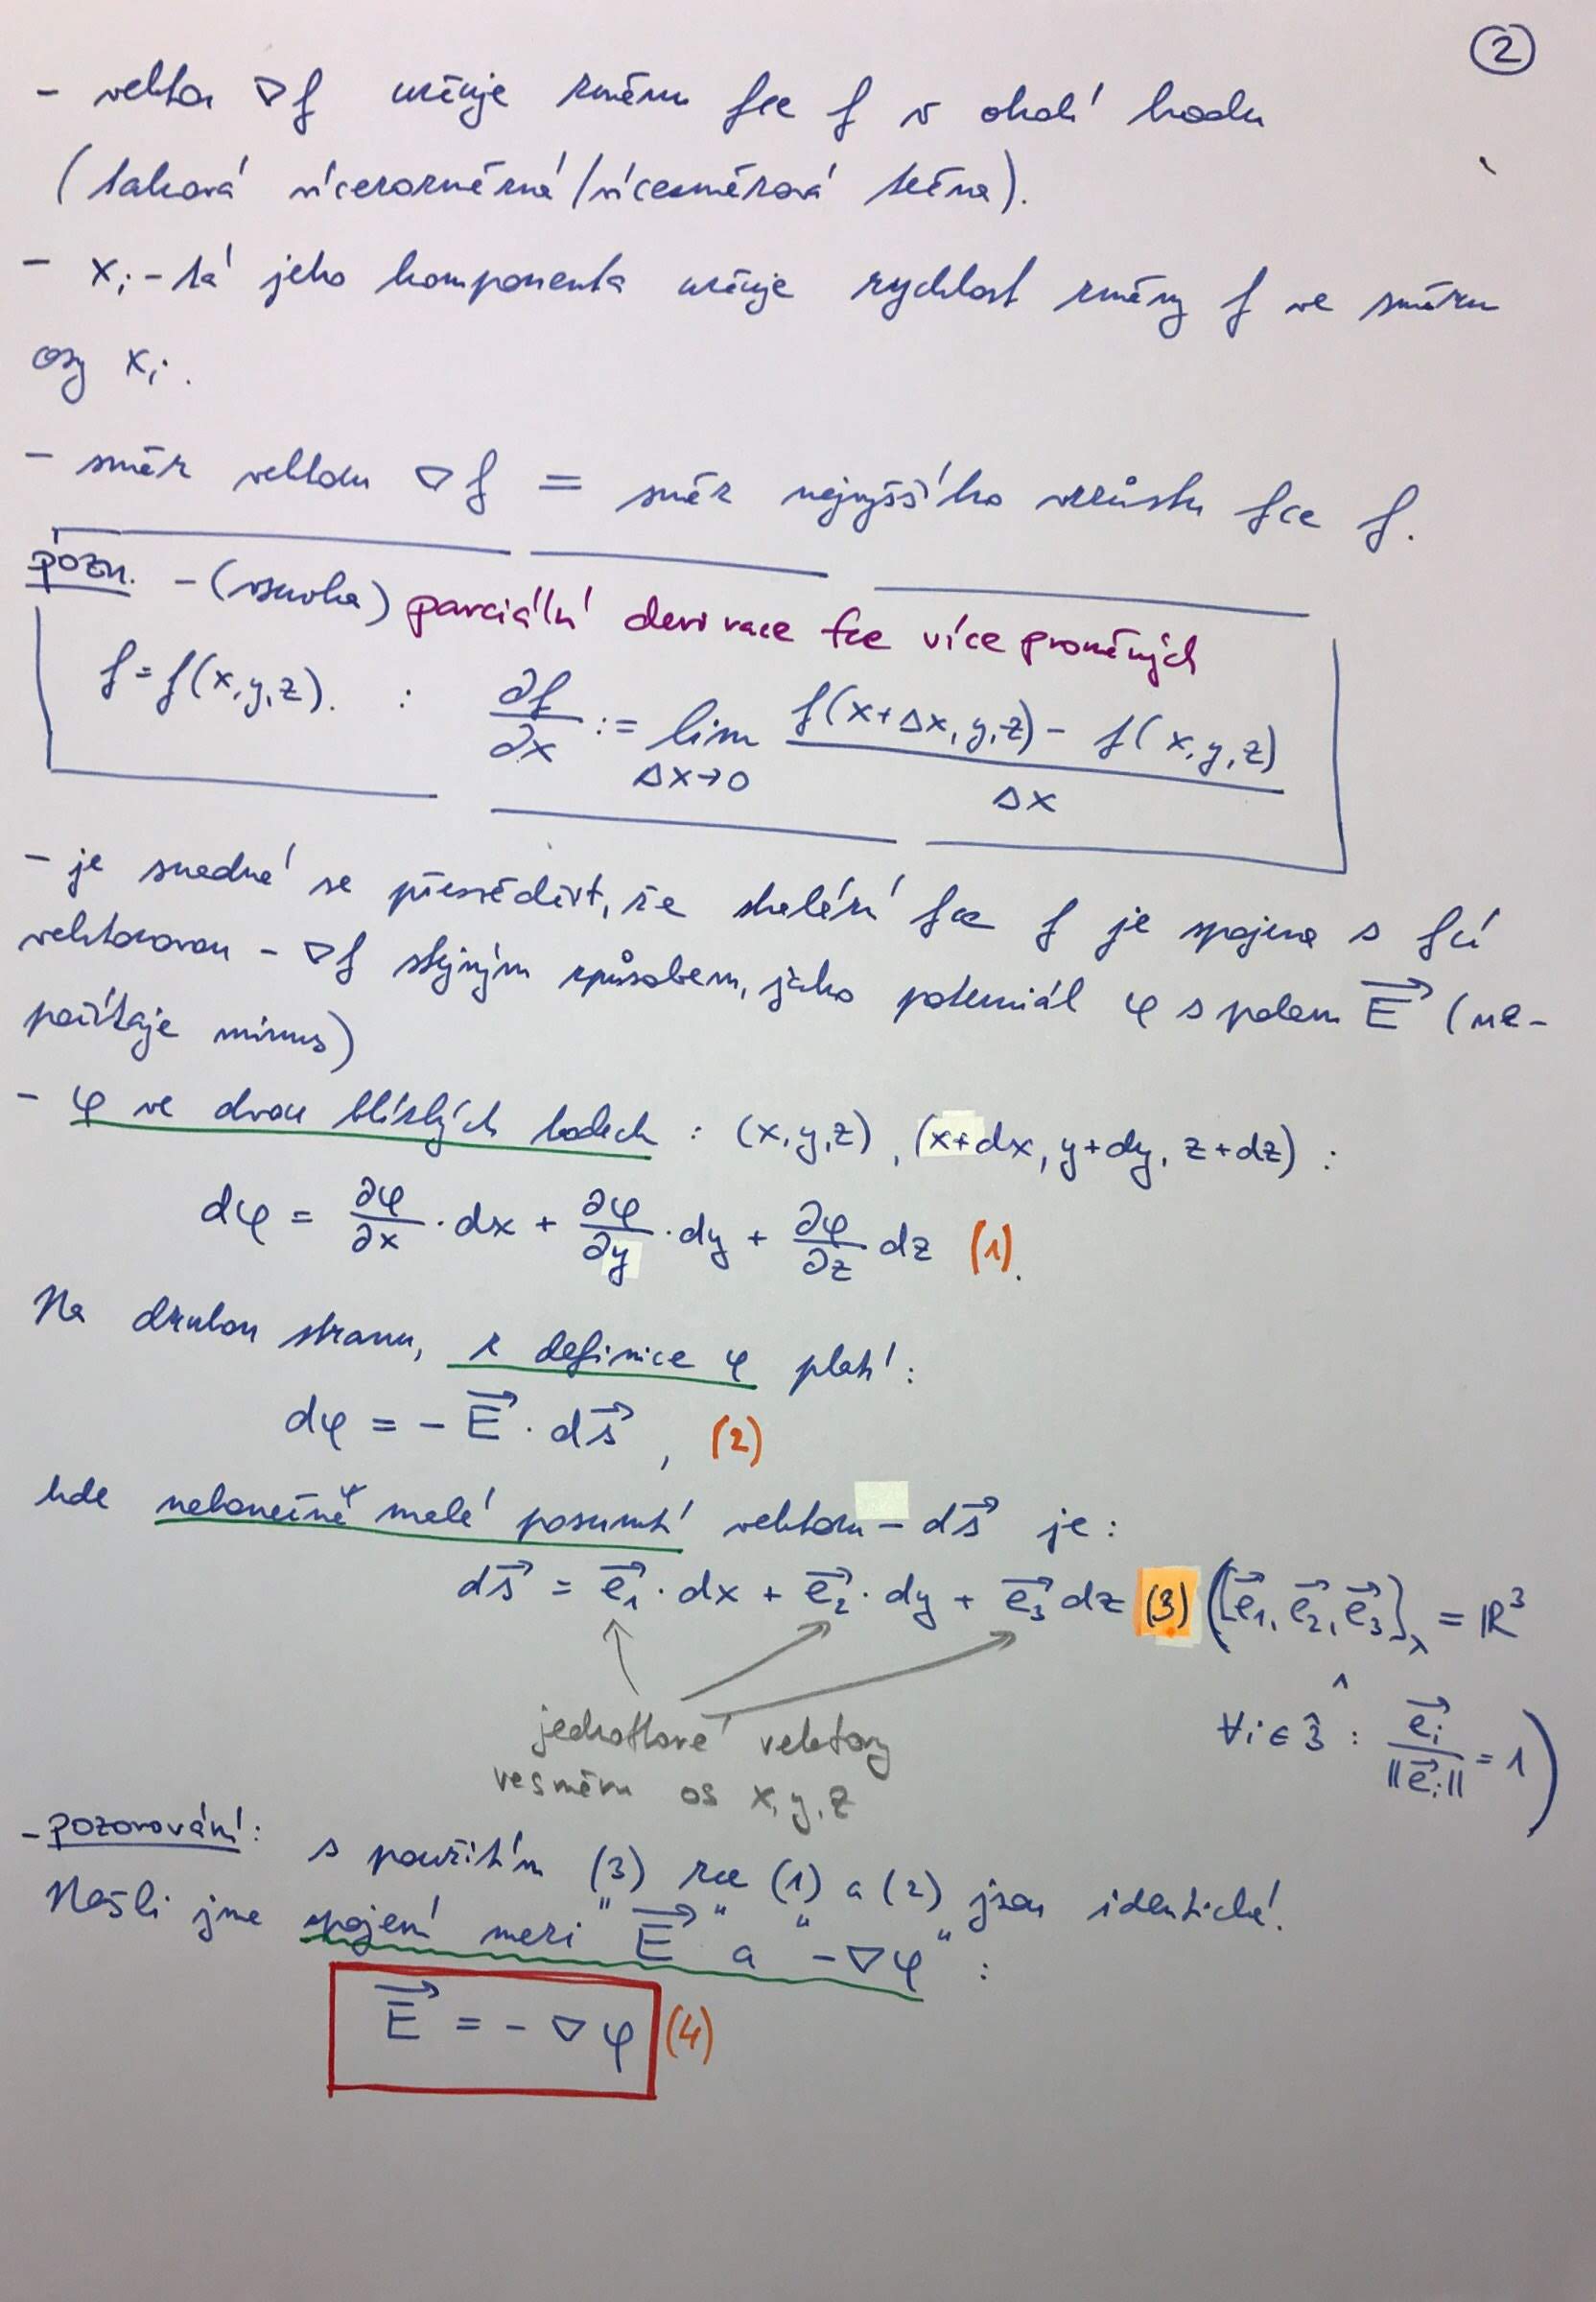 ②
- vektor ∇f určuje změnu fce f v okolí bodu
(taková vícerozměrná/vícesměrová tečna).
- xᵢ-tá jeho komponenta určuje rychlost změny f ve směru
osy xᵢ.
- směr vektoru ∇f = směr nejvyššího vzrůstu fce f.
pozn. - (vsuvka) parciální derivace fce více proměných
f = f(x,y,z). : ∂f/∂x := lim_{Δx→0} (f(x+Δx,y,z) - f(x,y,z))/Δx
- je snadné se přesvědčit, že skalární fce f je spojena s fcí
vektorovou - ∇f stejným způsobem, jako potenciál φ s polem E⃗ (ne-
počítaje mínus)
- φ ve dvou blízkých bodech : (x,y,z), (x+dx, y+dy, z+dz) :
dφ = ∂φ/∂x · dx + ∂φ/∂y · dy + ∂φ/∂z dz (1).
Na druhou stranu, z definice φ platí :
dφ = - E⃗ · ds⃗ , (2)
kde nekonečně malé posunutí vektoru - ds⃗ je :
ds⃗ = e⃗₁ · dx + e⃗₂ · dy + e⃗₃ dz (3) ([e⃗₁, e⃗₂, e⃗₃]_λ = ℝ³
∧
∀i ∈ 3̂ : e⃗ᵢ/||e⃗ᵢ|| = 1)
jednotkové vektory
ve směru os x,y,z
- pozorování : s použitím (3) rce (1) a (2) jsou identické.
Našli jsme spojení mezi "E⃗" a "-∇φ" :
E⃗ = - ∇φ (4)